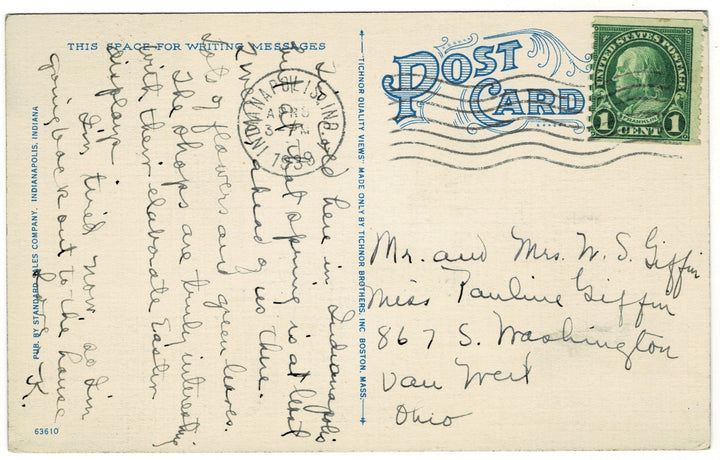 THIS SPACE FOR WRITING MESSAGES
POST CARD
UNITED STATES POSTAGE
FRANKLIN
1 CENT 1
INDIANAPOLIS, IND.
APR 6
3 PM
1939
It's cold here in Indianapolis
but spring is at least
2 weeks ahead of us there.
Lots of flowers and green leaves.
The shops are truly interesting
with their elaborate Easter
displays.
I'm tired now so I'm
going back out to the house
Love - K.
Mr. and Mrs. W. S. Giffin
Miss Pauline Giffin
867 S. Washington
Van Wert
Ohio
"TICHNOR QUALITY VIEWS" MADE ONLY BY TICHNOR BROTHERS, INC BOSTON, MASS.
PUB. BY STANDARD SALES COMPANY, INDIANAPOLIS, INDIANA
63610